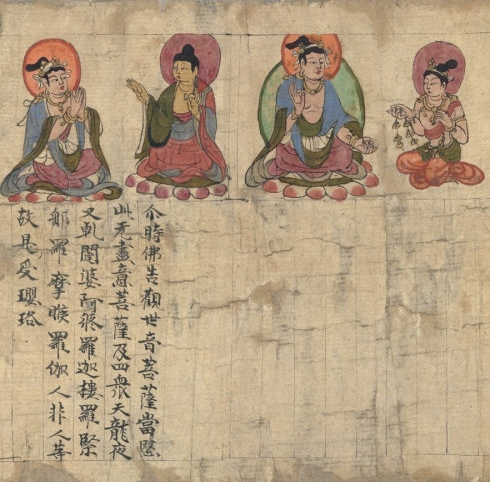 尒時佛告觀世音菩薩當愍
此无盡意菩薩及四衆天龍夜
叉乹闥婆阿脩羅迦樓羅緊
那羅摩睺羅伽人非人等
故是受瓔珞